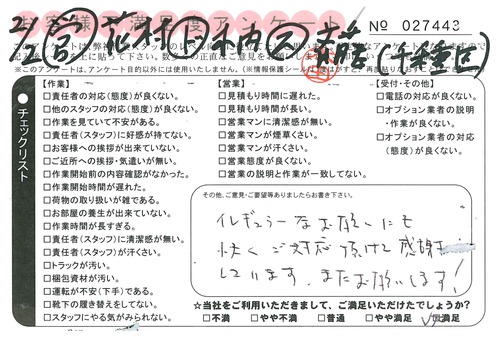 お客様 満足度アンケート
№ 027443
2/2 営 花村 斎藤 (千種区)
※このアンケートは、アンケート目的以外には使用いたしません。
チェックリスト
【作業】
□責任者の対応(態度)が良くない。
□他のスタッフの対応(態度)が良くない。
□作業を見ていて不安がある。
□責任者(スタッフ)に好感が持てない。
□お客様への挨拶が出来ていない。
□ご近所への挨拶・気遣いが無い。
□作業開始前の内容確認がなかった。
□作業開始時間が遅れた。
□荷物の取り扱いが雑である。
□お部屋の養生が出来ていない。
□作業時間が長すぎる。
□責任者(スタッフ)に清潔感が無い。
□責任者(スタッフ)が汗くさい。
□トラックが汚い。
□梱包資材が汚い。
□運転が不安(下手)である。
□靴下の履き替えをしてない。
□スタッフにやる気がみられない。
【営業】
□訪問時間に遅れた。
□見積もり時間が長い。
□営業マンに清潔感が無い。
□営業マンが煙草くさい。
□営業マンが汗くさい。
□営業態度が良くない。
□営業の説明と作業が一致してない。
【受付・その他】
□電話の対応が良くない。
□オプション業者の説明
・作業が良くない。
□オプション業者の対応
(態度)が良くない。
その他、ご意見・ご要望等ありましたらお書き下さい。
イレギュラーなお願いにも
快くご対応頂けて感謝
しています。またお願いします!
☆当社をご利用いただきまして、ご満足いただけたでしょうか?
□不満 □やや不満 □普通 □やや満足 ☑満足